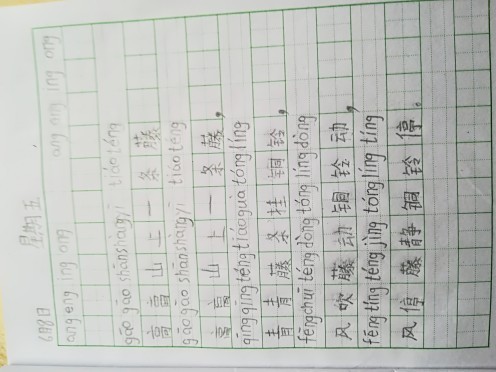 6月8日 星期五
ang eng ing ong ang eng ing ong
gāo gāo shānshàngyì tiáo téng
高高山上一条藤
gāo gāo shānshàngyì tiáo téng
高高山上一条藤，
qīngqīng téngtiáoguà tónglíng
青青藤条挂铜铃，
fēngchuī téngdòng tónglíngdòng
风吹藤动铜铃动，
fēngtíng téngjìng tónglíng tíng
风停藤静铜铃停。